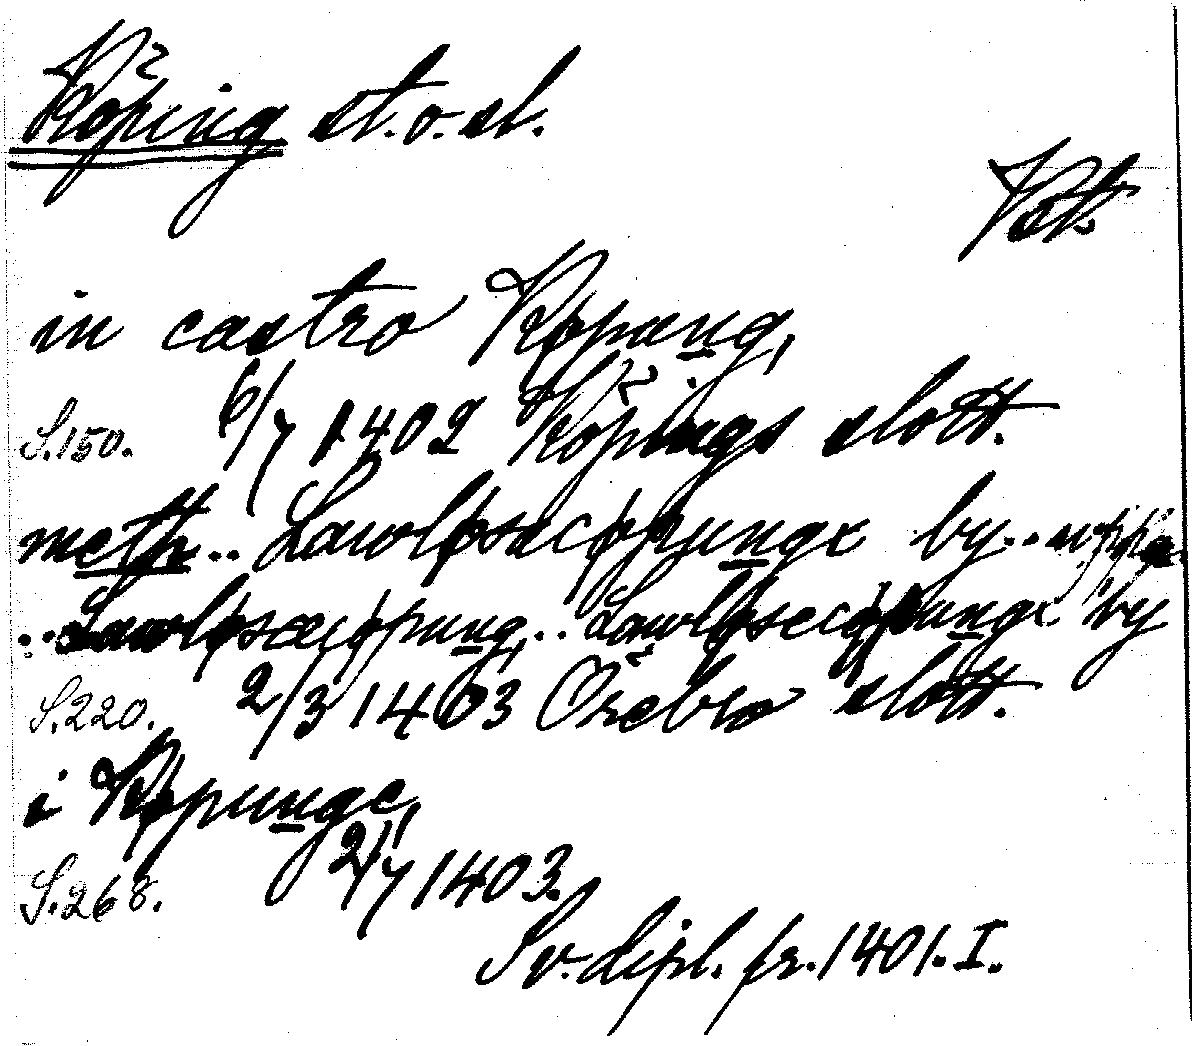 Köping st. o. sl.
Vstm.
in castro Køpung,
S.150. 6/7 1402 Köpings slott.
meth.. Lawløsæcøpunge by..
.. Lawløsæcøpung, .. Lawløsecøpunge by
S.220. 2/3 1403 Örebro slott.
i Køpunge,
S.268. 2/7 1403.
Sv. dipl. fr. 1401. I.